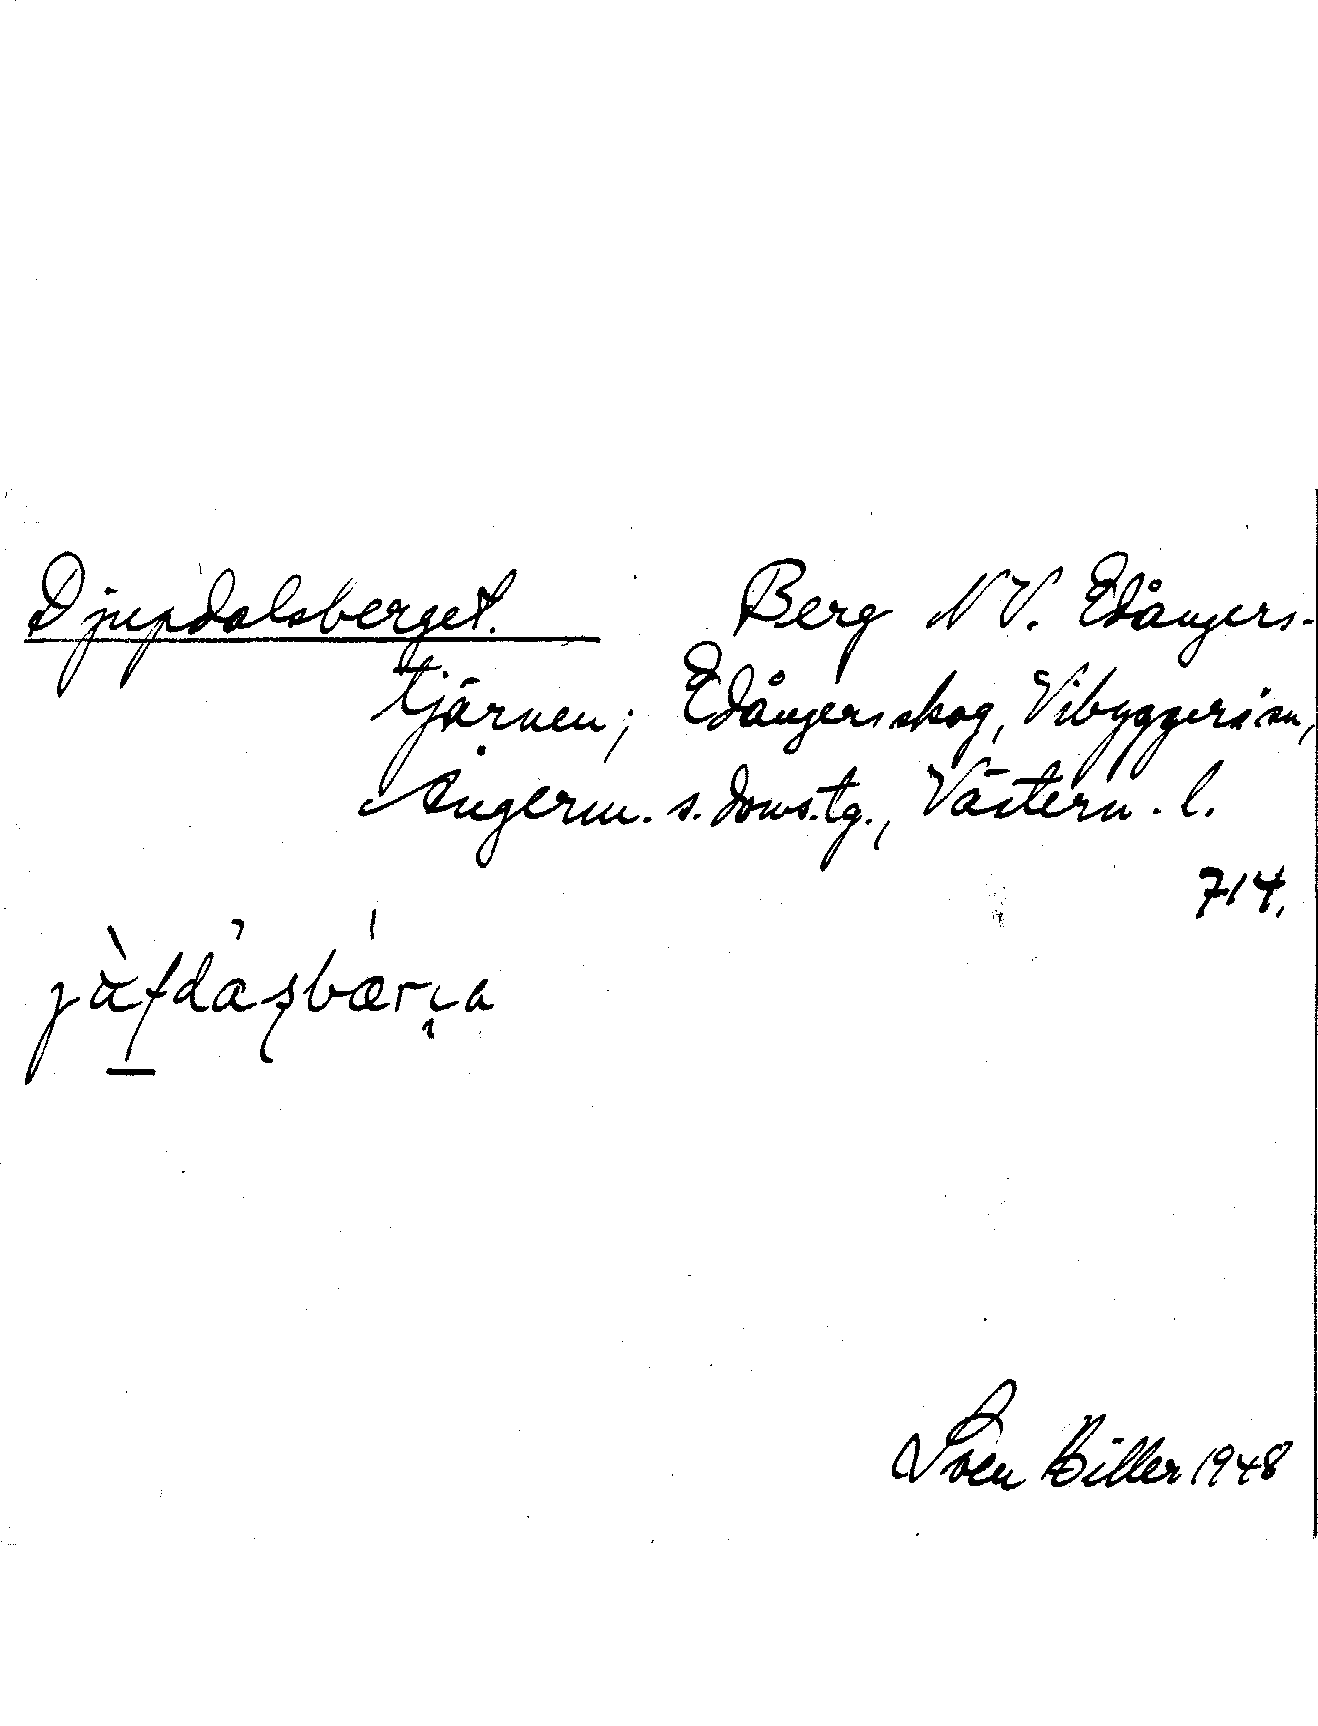 Djupdalsberget. Berg NV. Edångers-
tjärnen; Edångersskog, Vibyggerå sn,
Ångerm. s. doms.tg., Västern. l.
714.
Sven Hiller 1948